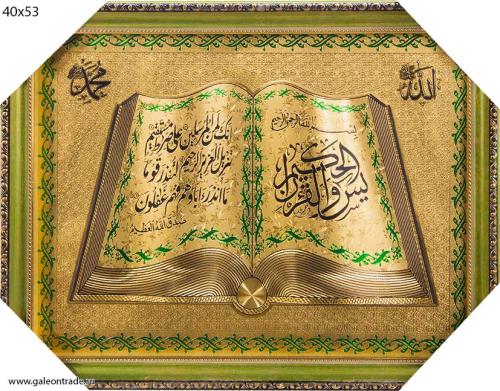 40x53
الله
محمد
بسم الله الرحمن الرحيم
يس والقرآن الحكيم
انك لمن المرسلين على صراط مستقيم
تنزيل العزيز الرحيم لتنذر قوما
ما انذر اباؤهم فهم غافلون
صدق الله العظيم